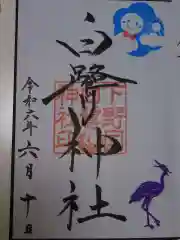 白鷺神社
令和六年六月十日